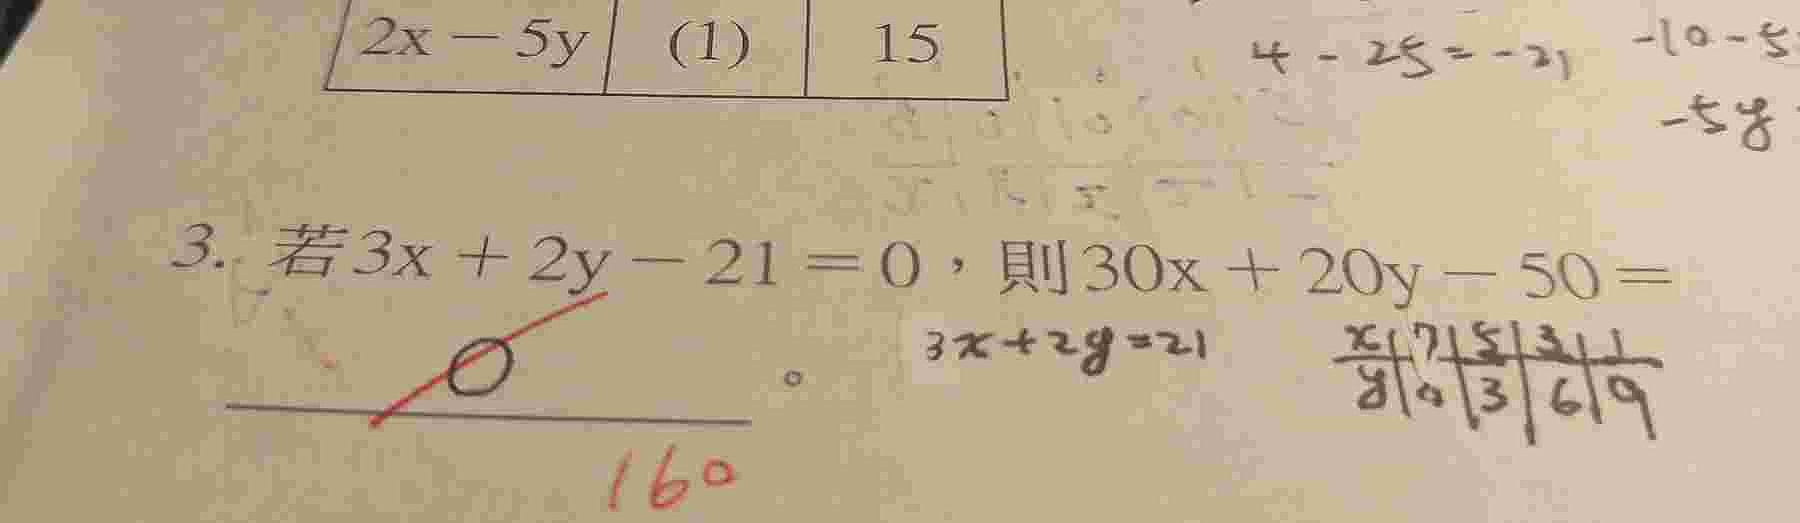 2x − 5y (1) 15
4 - 25 = -21
-10 - 5
-5y
3. 若3x + 2y − 21 = 0，則30x + 20y − 50 =
0 。
3x + 2y = 21
x 7 5 3 1
y 0 3 6 9
160